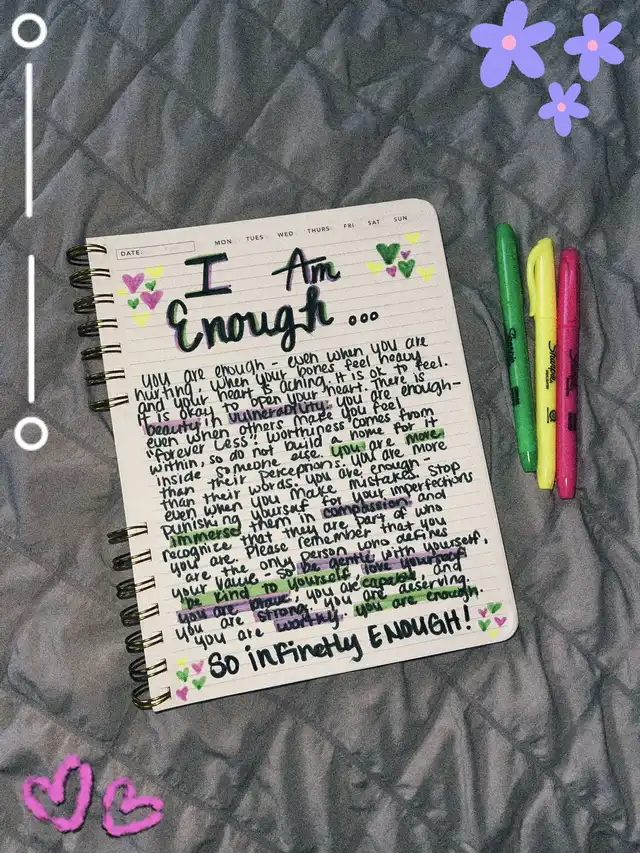 DATE:
MON TUES WED THURS FRI SAT SUN
I Am
Enough...
You are enough - even when you are
hurting; when your bones feel heavy
and your heart is aching. it is ok to feel.
it is okay to open your heart. There is
beauty in vulnerability. You are enough-
even when others make you feel
"forever less", worthiness comes from
within, so do not build a home for it
inside someone else. you are more
than their perceptions. you are more
than their words. You are enough -
even when you make mistakes. Stop
punishing yourself for your imperfections
immerse them in compassion, and
recognize that they are part of who
you are. Please remember that you
are the only person who defines
your value. so be gentle with yourself,
be kind to yourself, love yourself
you are brave, you are capable, and
you are strong. you are deserving.
you are worthy. you are enough.
SO inFinetly ENOUGH!
Sharpie